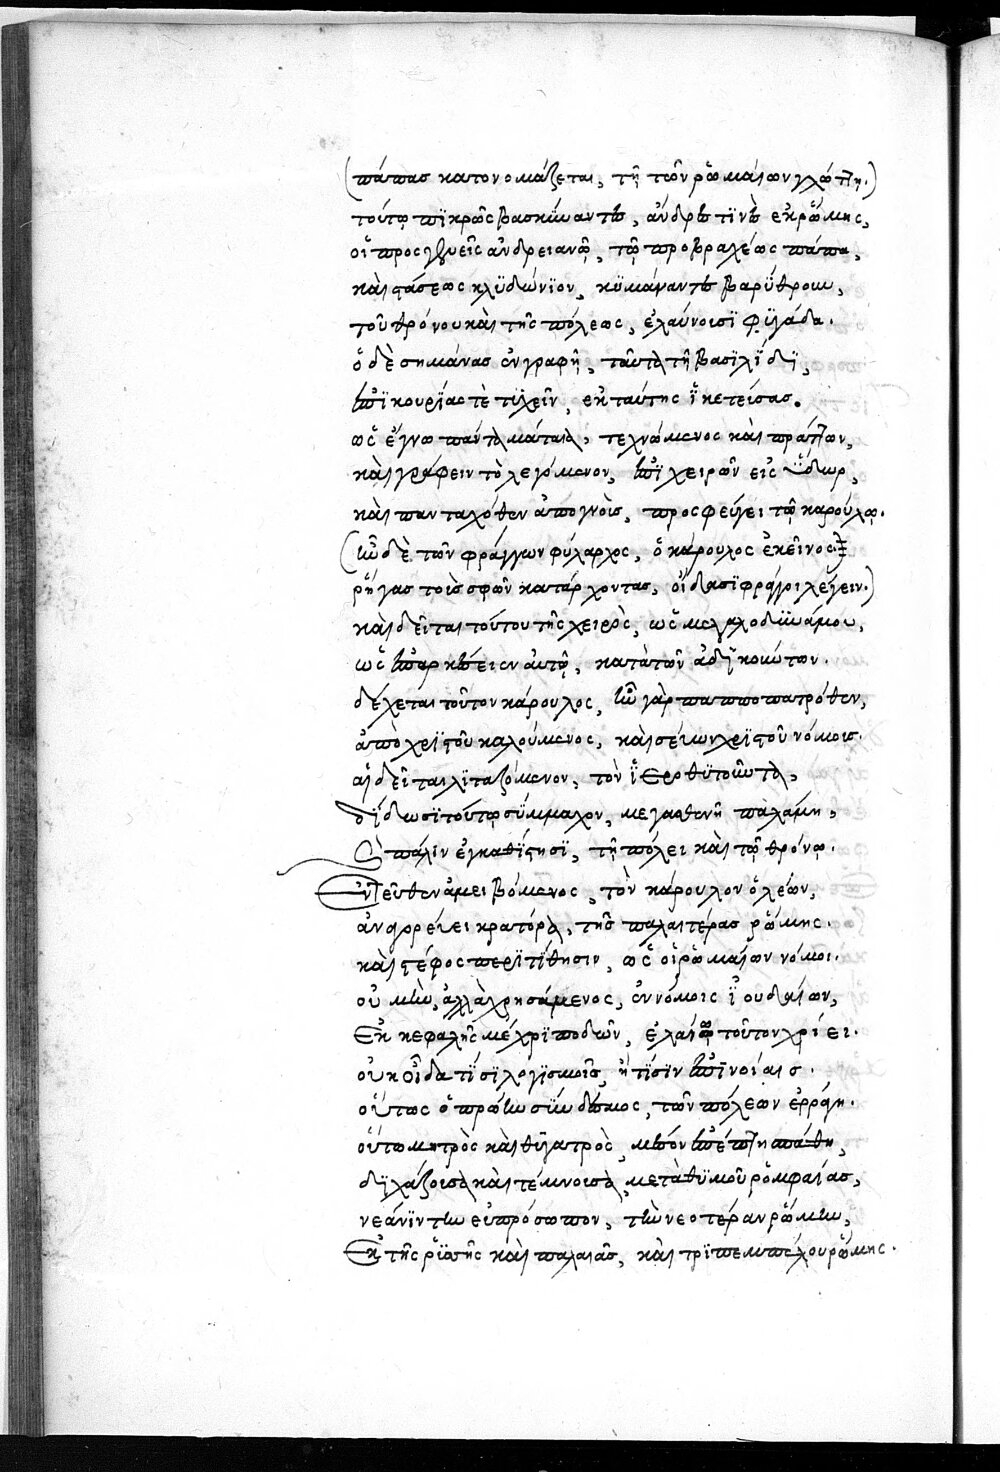 (πάπας κατονομάζεται, τῇ τῶν ῥωμαίων γλώττῃ.)
τούτῳ πικρῶς βασκήναντες, ἄνδρες τινὲς ἐκ ῥώμης,
οἱ προσγενεῖς ἀνδρειανῷ, τῷ προβραχέως πάπα,
καὶ στάσεως κλυδώνιον, κυμάναντες βαρύθρουν,
τοῦ θρόνου καὶ τῆς πόλεως, ἐλαύνουσι φυγάδα.
ὁ δὲ σημάνας ἐν γραφῇ, ταῦτα τῇ βασιλίδι,
ἐπικουρίας τὲ τυχεῖν, ἐκ ταύτης ἱκετεύσας.
ὡς ἔγνω πάντα μάταια, τεχνώμενος καὶ πράττων,
καὶ γράφειν τὸ λεγόμενον, ἐπιχειρῶν εἰς ὕδωρ,
καὶ πανταχόθεν ἀπογνοὺς, προσφεύγει τῷ καρούλῳ.
(ἦν δὲ τῶν φράγγων φύλαρχος, ὁ κάρουλος ἐκεῖνος.
ῥῆγας τοὺς σφῶν κατάρχοντας, οἴδασι φράγγοι λέγειν.)
καὶ δεῖται τούτου τῆς χειρὸς, ὡς μεγαλοδυνάμου,
ὡς ἐπαρκέσειεν αὐτῷ, κατὰ τῶν ἀδικούντων.
δέχεται τοῦτον κάρουλος, ἦν γὰρ παπποπατρόθεν,
ἀπὸ χριστοῦ καλούμενος, καὶ σέβων χριστοῦ νόμους.
αἰδεῖται λιταζόμενον, τὸν ἱεροθυτοῦντα,
δίδωσι τούτῳ σύμμαχον, μεγασθενῆ παλάμην,
καὶ πάλιν ἐγκαθίστησι, τῇ πόλει καὶ τῷ θρόνῳ.
Ἐντεῦθεν ἀμειβόμενος, τὸν κάρουλον ὁ λέων,
ἀναγορεύει κράτορα, τῆς παλαιτέρας ῥώμης.
καὶ στέφος περιτίθησιν, ὡς οἱ ῥωμαίων νόμοι.
οὐ μὴν, ἀλλὰ χρησάμενος, ἐν νόμοις ἰουδαίων,
ἐκ κεφαλῆς μέχρι ποδῶν, ἐλαίῳ τοῦτον χρίει.
οὐκ οἶδα τίσι λογισμοῖς, ἢ τίσιν ἐπινοίαις.
οὕτως ὁ πρώην σύνδεσμος, τῶν πόλεων ἐρράγη.
οὕτω μητρὸς καὶ θυγατρὸς, μέσον ἐπέπτη σπάθη,
διχάζουσα καὶ τέμνουσα, μετὰ θυμοῦ ῥομφαίας,
νεάνιν τὴν εὐπρόσωπον, τὴν νεοτέραν ῥώμην,
ἐκ τῆς ῥυσῆς καὶ παλαιᾶς, καὶ τριπεμπέλου ῥώμης.